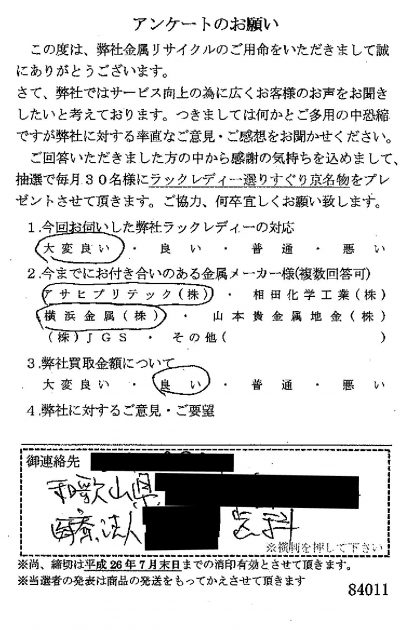 アンケートのお願い
この度は、弊社金属リサイクルのご用命をいただきまして誠
にありがとうございます。
さて、弊社ではサービス向上の為に広くお客様のお声をお聞き
したいと考えております。つきましては何かとご多用の中恐縮
ですが弊社に対する率直なご意見・ご感想をお聞かせください。
ご回答いただきました方の中から感謝の気持ちを込めまして、
抽選で毎月30名様にラックレディー選りすぐり京名物をプレ
ゼントさせて頂きます。ご協力、何卒宜しくお願い致します。
1.今回お伺いした弊社ラックレディーの対応
大変良い・良い・普通・悪い
2.今までにお付き合いのある金属メーカー様(複数回答可)
アサヒプリテック(株)・相田化学工業(株)
横浜金属(株)・山本貴金属地金(株)
(株)JGS・その他( )
3.弊社買取金額について
大変良い・良い・普通・悪い
4.弊社に対するご意見・ご要望
御連絡先
和歌山県
医療法人 歯科
※横判を押して下さい
※尚、締切は平成26年7月末日までの消印有効とさせて頂きます。
※当選者の発表は商品の発送をもってかえさせて頂きます
84011